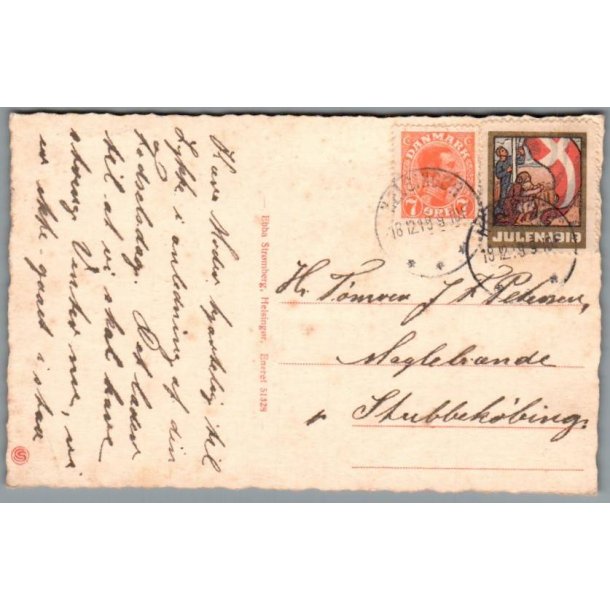 Kære Moder hjerteligt til
Lykke i anledning af din
Fødselsdag. Det lader
til at vi skal have
streng Vinter nu, vi
er ikke gaaet i staa
Ebba Strømberg, Helsingør. Eneret 51328
DANMARK
7 ØRE 7
JULEN·1919
18.12.19
18.12.19
Hr. Tømrer J P Petersen,
Maglebrænde
pr Stubbekøbing.